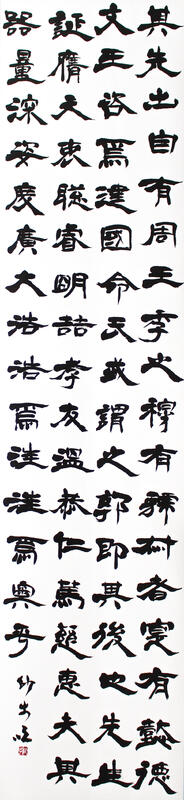 其先出自有周王季之穆有虢叔者寔有懿德
文王咨焉建國命氏或謂之郭即其後也先生
誕膺天衷聡睿明喆孝友溫恭仁篤慈惠夫其
器量深姿度廣大浩浩焉汪汪焉奧乎